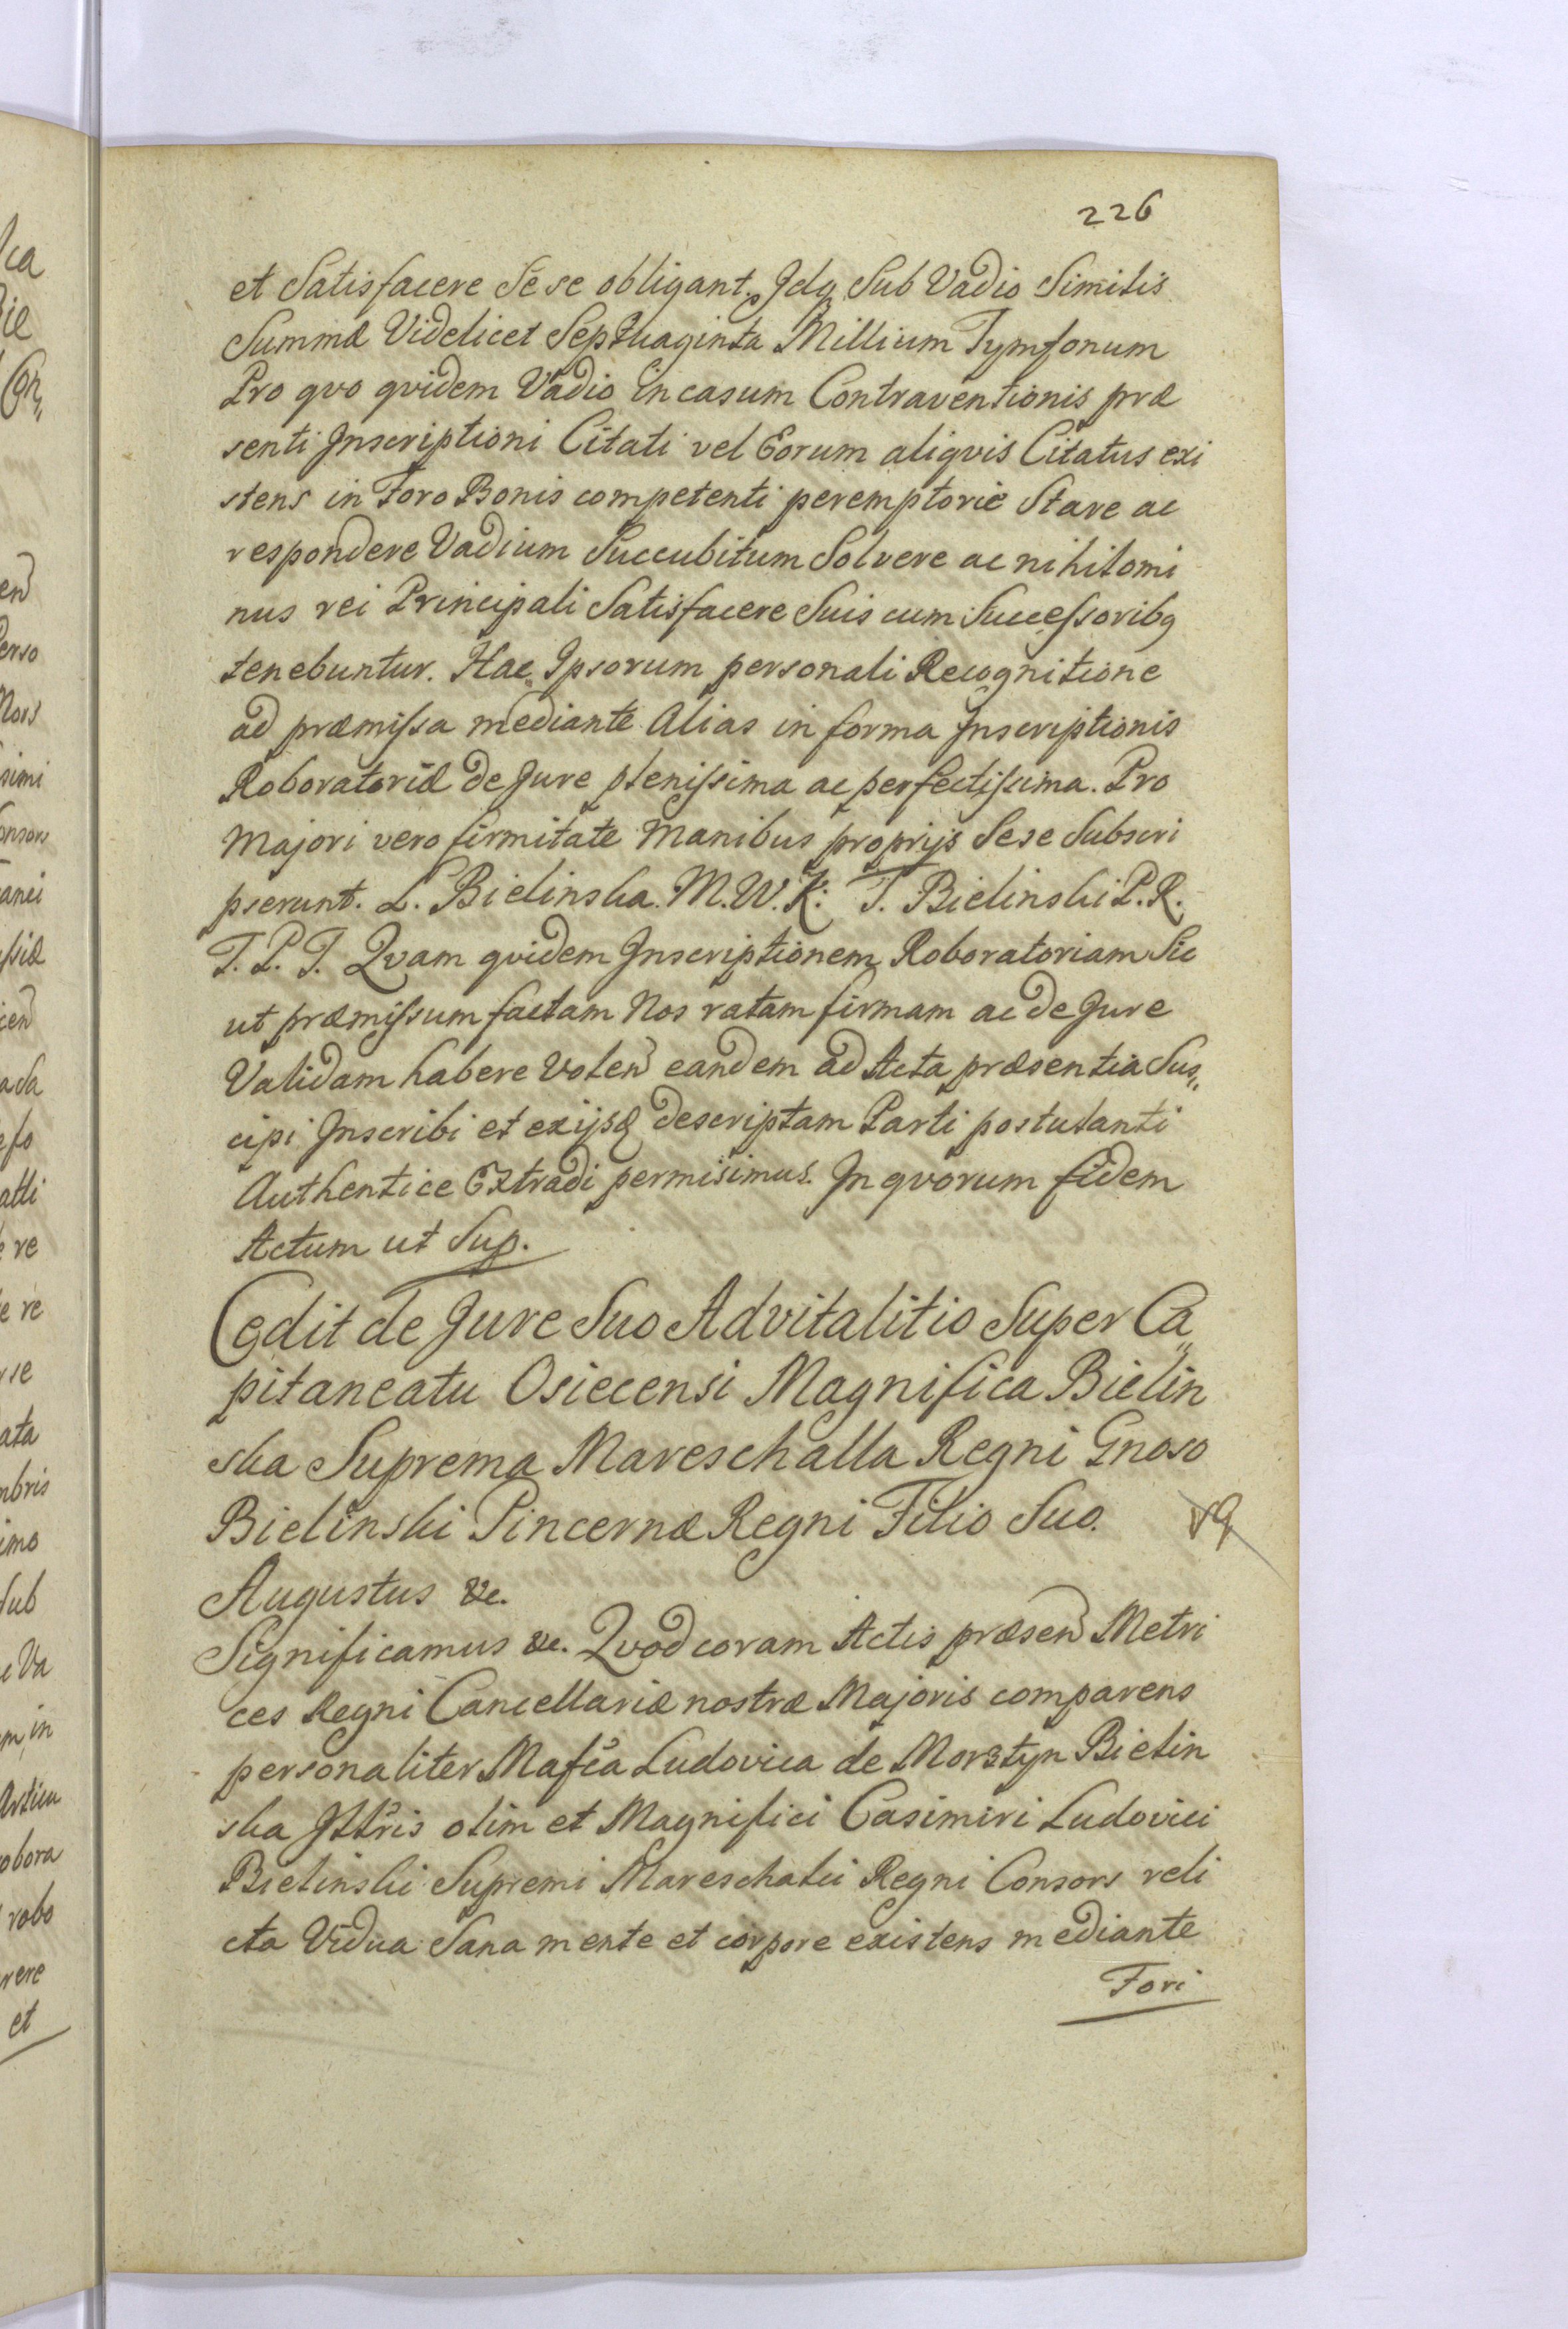 226
et Satisfacere Sese obligant, Jdq Sub Vadio Similis
Summæ Videlicet Septuaginta Millium Tymfonum
Pro qvo qvidem Vadio in casum Contraventionis præ
senti Jnscriptioni Citati vel Eorum aliqvis Citatus exi
stens in Foro Bonis competenti peremptorie Stare ac
respondere Vadium Succubitum Solvere ac nihilomi
nus rei Principali Satisfacere Suis cum Successoribq
tenebuntur. Hac Jpsorum personali Recognitione
ad præmissa mediante Alias in forma Jnscriptionis
Roboratoriæ de Jure plenissima ac perfectissima. Pro
Majori vero firmitate Manibus proprijs Sese Subscri
pserunt. L. Bielinska. M.W.K: T. Bielinski P.R.
T. P. T. Qvam qvidem Jnscriptionem Roboratoriam Sic
ut præmissum factam Nos ratam firmam ac de Jure
Validam habere Volen eandem ad Acta præsentia Sus„
cipi Jnscribi et exijsq descriptam Parti postulanti
Authentice Extradi permisimus. Jn qvorum fidem
Actum ut Sup.
Cedit de Jure Suo Advitalitio Super Ca„
pitaneatu Osiecensi Magnifica Bielin
ska Suprema Mareschalla Regni Gnoso
Bielinski Pincernæ Regni Filio Suo.
Augustus &c.
Significamus &c. Qvod coram Actis præsen Metri
ces Regni Cancellariæ nostræ Majoris comparens
personaliter Mafca Ludovica de Morsztyn Bielin
ska Jllris olim et Magnifici Casimiri Ludovici
Bielinski Supremi Mareschalci Regni Consors reli
cta Vidua Sana mente et corpore existens mediante
Fori